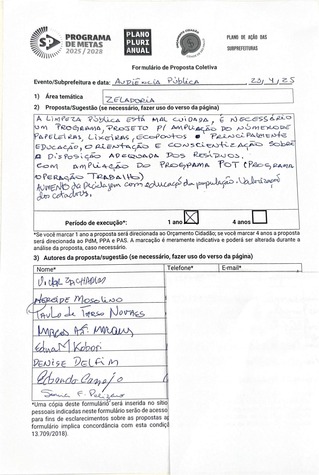 SP PROGRAMA DE METAS 2025 / 2028
PLANO PLURI ANUAL
PLANO DE AÇÃO DAS SUBPREFEITURAS
Formulário de Proposta Coletiva
Evento/Subprefeitura e data: AUDIÊNCIA PÚBLICA 23/4/25
1) Área temática ZELADORIA
2) Proposta/Sugestão (se necessário, fazer uso do verso da página)
A LIMPEZA PÚBLICA ESTÁ MAL CUIDADA, É NECESSÁRIO
UM PROGRAMA, PROJETO P/ AMPLIAÇÃO DO NÚMERO DE
PAPELEIRAS, LIXEIRAS, ECOPONTOS E PRINCIPALMENTE
EDUCAÇÃO, ORIENTAÇÃO E CONSCIENTIZAÇÃO SOBRE
A DISPOSIÇÃO ADEQUADA DOS RESÍDUOS.
COM AMPLIAÇÃO DO PROGRAMA POT (PROGRAMA
OPERAÇÃO TRABALHO)
AUMENTO da Reciclagem com educação da população. Valorização
dos catadores.
Período de execução*: 1 ano X 4 anos
*Se você marcar 1 ano a proposta será direcionada ao Orçamento Cidadão; se você marcar 4 anos a proposta
será direcionada ao PdM, PPA e PAS. A marcação é meramente indicativa e poderá ser alterada durante a
análise da proposta, caso necessário.
3) Autores da proposta/sugestão (se necessário, fazer uso do verso da página)
Nome* Telefone* E-mail*
VITOR ZACHARIAS
Paulo de Tarso Novaes
Edna M Kobori
DENISE DELFIM
*Uma cópia deste formulário será inserida no sítio
pessoais indicadas neste formulário serão de acesso
para fins de esclarecimentos sobre as propostas ap
formulário implica concordância com esta condiç
13.709/2018).